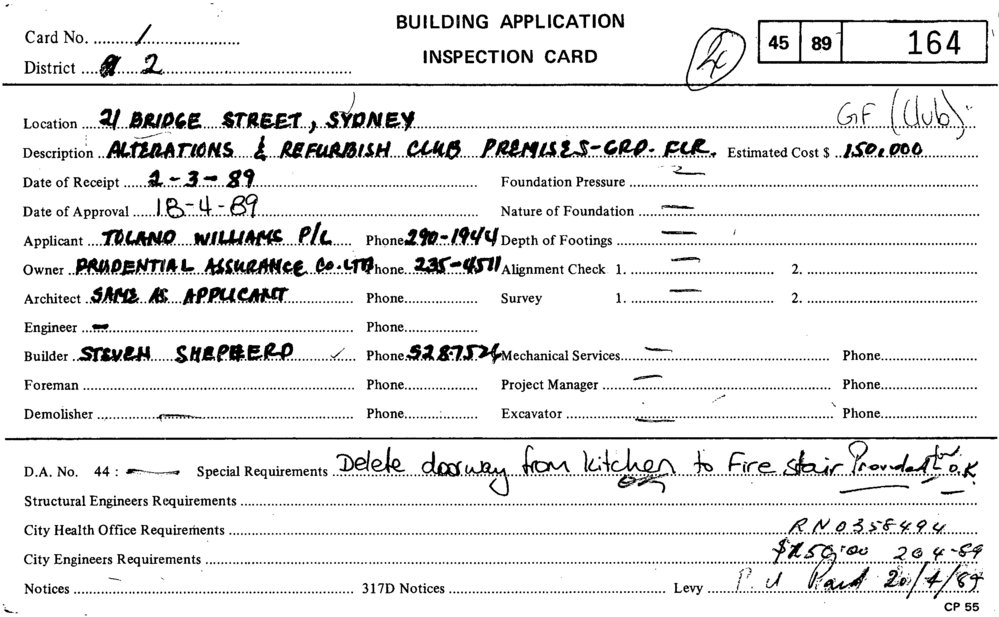 BUILDING APPLICATION
INSPECTION CARD
Card No. 1
District 2
45 89 164
Location 21 BRIDGE STREET, SYDNEY GF (Club)
Description ALTERATIONS & REFURBISH CLUB PREMISES-GRD. FLR. Estimated Cost $ 150,000
Date of Receipt 2-3-89 Foundation Pressure —
Date of Approval 18-4-89 Nature of Foundation —
Applicant TOLAND WILLIAMS P/L Phone 290-1944 Depth of Footings —
Owner PRUDENTIAL ASSURANCE CO. LTD Phone 235-4511 Alignment Check 1. — 2.
Architect SAME AS APPLICANT Phone Survey 1. — 2.
Engineer — Phone
Builder STEVEN SHEPHERD ✓ Phone 5287524 Mechanical Services — Phone
Foreman Phone Project Manager — Phone
Demolisher — Phone Excavator — Phone
D.A. No. 44 : — Special Requirements Delete doorway from kitchen to Fire stair O.K
Structural Engineers Requirements
City Health Office Requirements RN0358494
City Engineers Requirements 20 4-89
Notices 317D Notices Levy Paid 20/4/89
CP 55